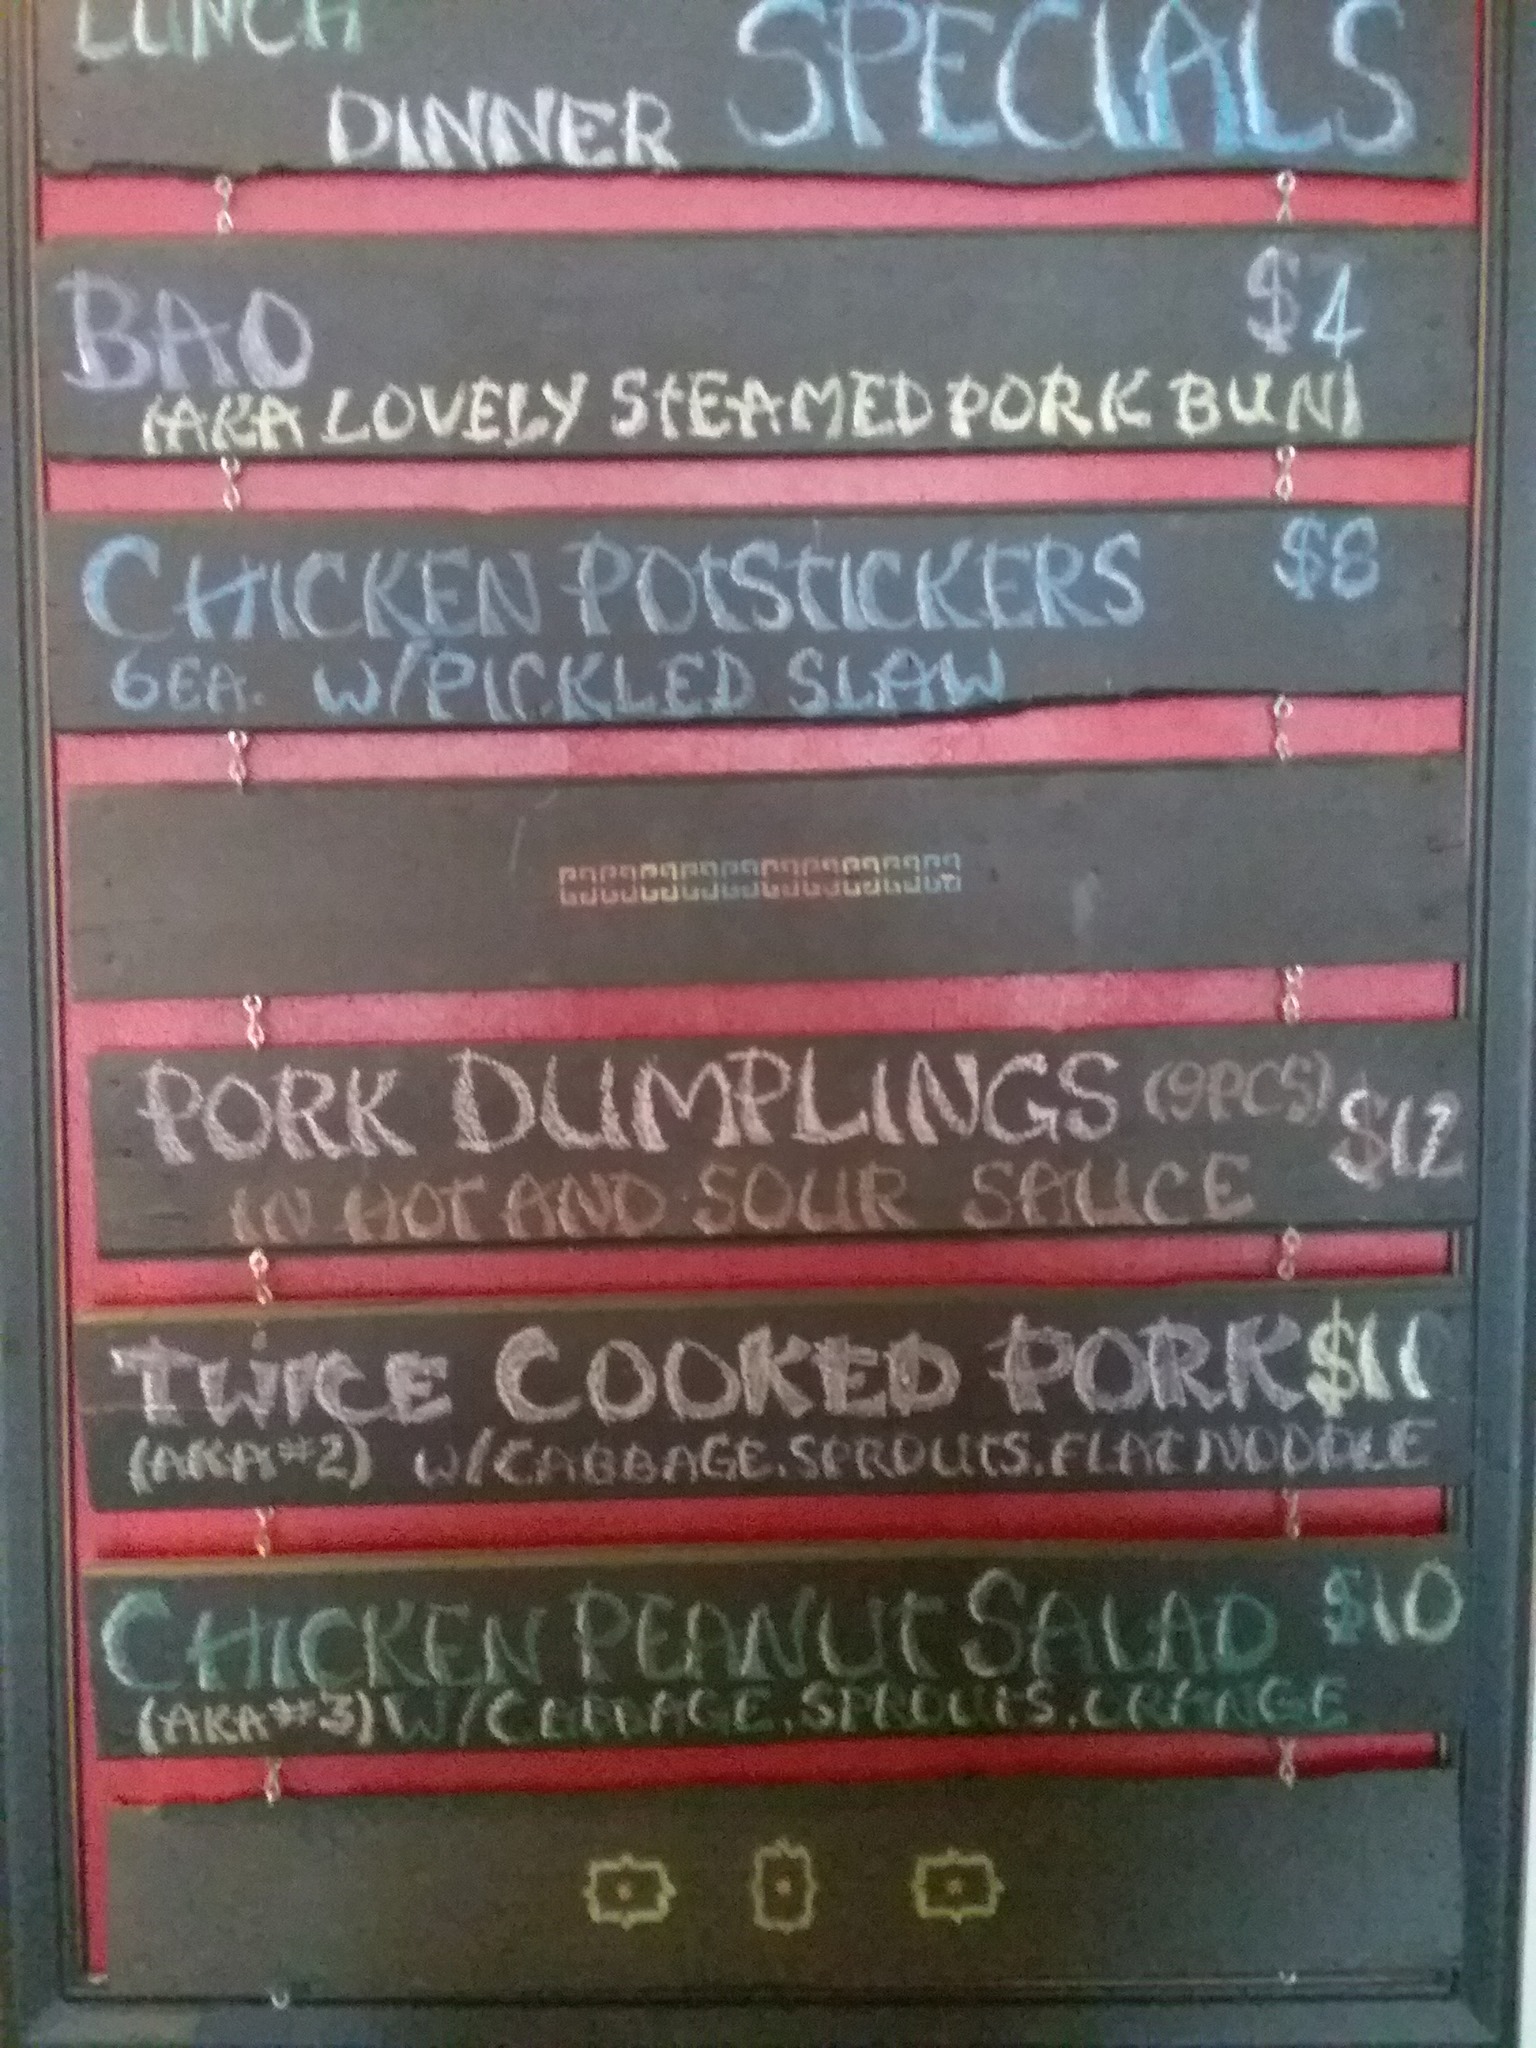 LUNCH
DINNER SPECIALS
BAO $4
(AKA LOVELY STEAMED PORK BUN)
CHICKEN POTSTICKERS $8
6EA. W/PICKLED SLAW
PORK DUMPLINGS (9PCS) $12
IN HOT AND SOUR SAUCE
TWICE COOKED PORK $11
(AKA #2) W/CABBAGE, SPROUTS, FLAT NOODLE
CHICKEN PEANUT SALAD $10
(AKA #3) W/CABBAGE, SPROUTS, ORANGE